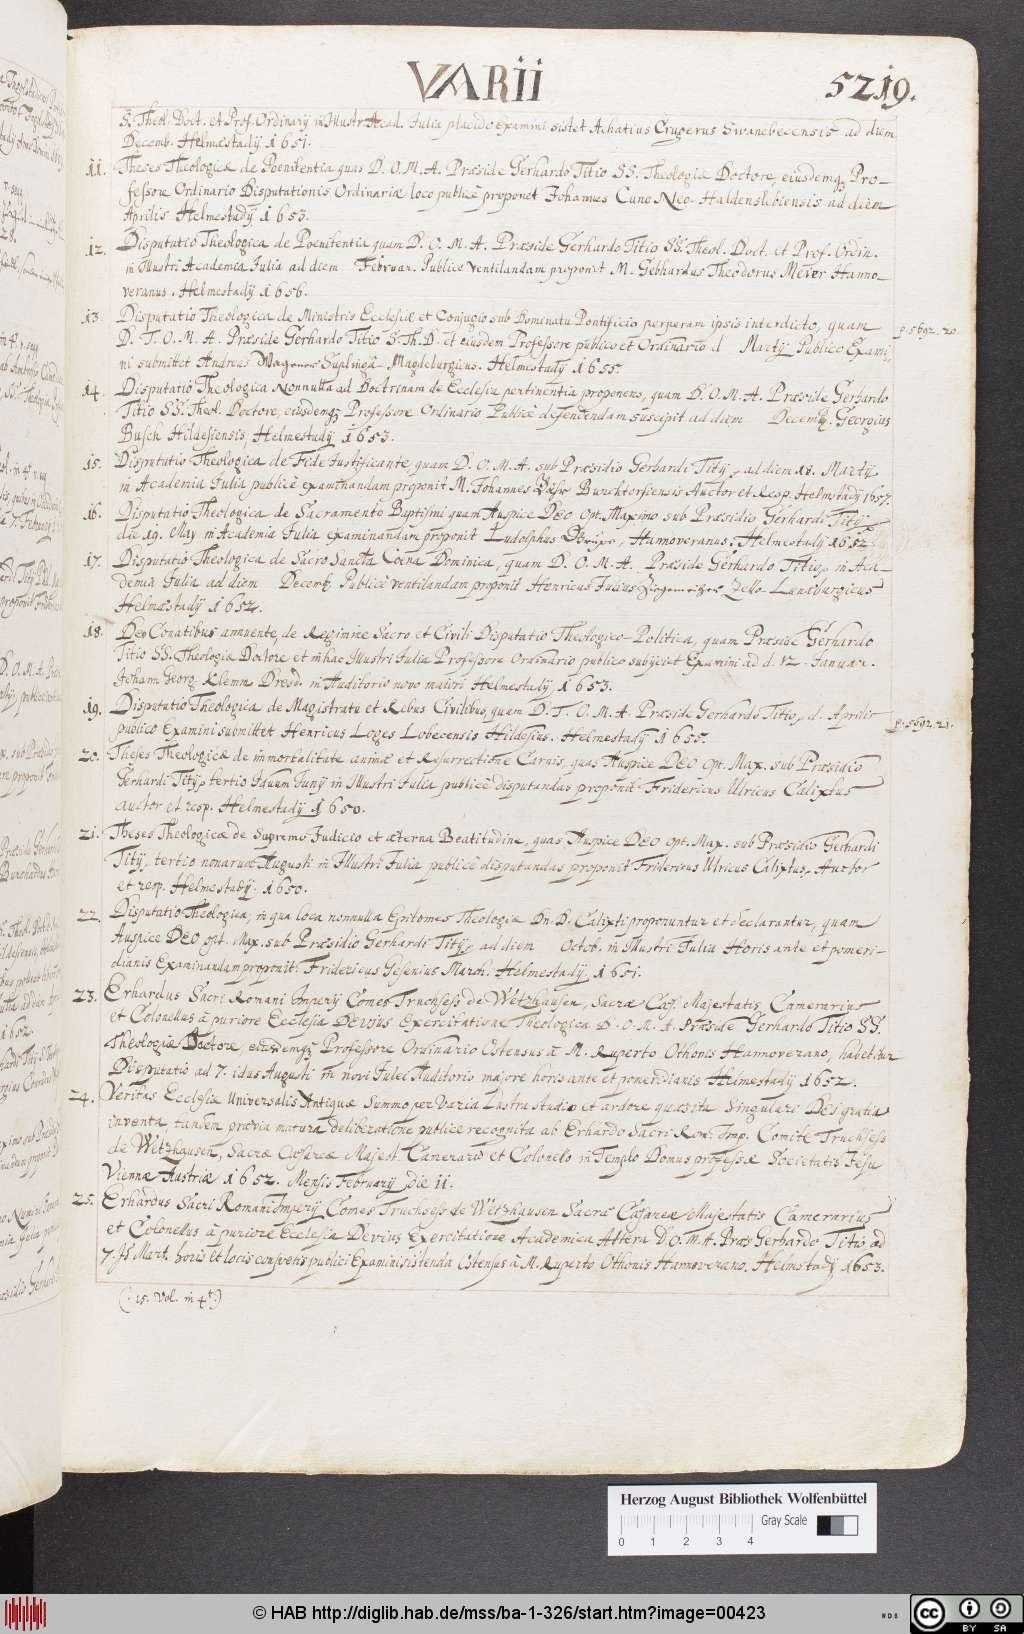 VARii
5219.
S. Theol. Doct. et Prof. Ordinarij in Illustr Acad. Julia placido examini sistet Achatius Crugerus Swanebecensis ad diem
Decemb. Helmæstadij 1651.
11. Theses Theologicæ de Poenitentia quas D. O. M. A. Præside Gerhardo Titio SS. Theologiæ Doctore, eiusdemq3 Pro-
fessore Ordinario Disputationis Ordinariæ loco publicè proponet Johannes Cuno Neo-Haldenslebiensis ad diem
Aprilis Helmestadij 1653.
12. Disputatio Theologica de Poenitentia quam D. O. M. A. Præside Gerhardo Titio SS. Theol. Doct. et Prof. Ordin.
in Illustri Academia Julia ad diem Februar. Publice ventilandam proponit M. Gebhardus Theodorus Meier Hanno-
veranus. Helmestadij 1656.
13. Disputatio Theologica de Ministris Ecclesiæ et Conjugio sub Dominatu Pontificio perperam ipsis interdicto, quam
p. 5692. 20.
D. T. O. M. A. Præside Gerhardo Titio S. Th. D. et eiusdem Professore publico et Ordinario d Martij Publico Exami-
ni submittet Andreas Wagener Suplingâ-Magdeburgicus. Helmestadij 1655.
14. Disputatio Theologica Nonnulla ad Doctrinam de Ecclesia pertinentia proponens, quam D. O. M. A. Præside Gerhardo
Titio SS. Theol. Doctore, eiusdemq3 Professore Ordinario Publicè defendendam suscipit ad diem Decemb. Georgius
Busch Hildesiensis Helmestadij 1653.
15. Disputatio Theologica de Fide Justificante, quam D. O. M. A. sub Præsidio Gerhardi Titij, ad diem 18. Martij
in Academia Julia publicè examinandam proponit M. Johannes Burchtorfiensis Auctor et Resp. Helmstadij 1657.
16. Disputatio Theologica de Sacramento Baptismi quam Auspice DEO Opt. Maximo sub Præsidio Gerhardi Titij
die 19. May in Academia Julia examinandam proponit Ludolphus, Hannoveranus. Helmestadij 1652.
17. Disputatio Theologica de Sacro Sancta Coena Dominica, quam D. O. M. A. Præside Gerhardo Titio, in Aca-
demia Julia ad diem Decemb. Publicè ventilandam proponit Henricus Julius Ziegenmeyer Zello-Luneburgicus
Helmæstadij 1652.
18. Deo Conatibus annuente, de Regimine Sacro et Civili Disputatio Theologico-Politica, quam Præside Gerhardo
Titio SS. Theologiæ Doctore et in hac Illustri Julia Professore Ordinario publico subijciet Examini ad d. 12. Januar.
Joham Georg. Klemm Dresd. in Auditorio novo maiori Helmestadij 1653.
19. Disputatio Theologica de Magistratu et Rebus Civilibus, quam D. T. O. M. A. Præside Gerhardo Titio, d. Aprilis
p. 5692. 21.
publico Examini submittet Henricus Loges Lobecensis Hildesius. Helmestadij 1655.
20. Theses Theologicæ de immortalitate animæ et Resurrectione Carnis, quas Auspice DEO Opt. Max. sub Præsidio
Gerhardi Titij, tertio Iduum Junij in Illustri Julia publicè disputandas proponit Fridericus Ulricus Calixtus
auctor et resp. Helmestadij 1650.
21. Theses Theologicæ de Supremo Judicio et æterna Beatitudine, quas Auspice DEO Opt. Max. sub Præsidio Gerhardi
Titij, tertio nonarum Augusti in Illustri Julia publicè disputandas proponit Fridericus Ulricus Calixtus, Auctor
et resp. Helmestadij. 1650.
22. Disputatio Theologica, in qua loca nonnulla Epitomes Theologiæ Dn. D. Calixti proponuntur et declarantur, quam
Auspice DEO opt. Max. sub Præsidio Gerhardi Titij, ad diem Octob. in Illustri Julia Horis ante et pomeri-
dianis Examinandam proponit. Fridericus Gesenius March. Helmestadij. 1651.
23. Erhardus Sacri Romani Imperij Comes Truchsess de Wetzhausen, Sacræ Cæs. Majestatis Camerarius
et Colonellus à puriore Ecclesia Devius Exercitatione Theologica D. O. M. A. Præside Gerhardo Titio SS.
Theologiæ Doctore, eiusdemq3 Professore Ordinario Ostensus à M. Ruperto Othonis Hannoverano, habebitur
Disputatio ad 7. idus Augusti in novi Julei Auditorio majore horis ante et pomeridianis Helmestadij 1652.
24. Veritas Ecclesiæ Universalis Antiquæ Summo per Varia Lustra studio et ardore quæsita Singulari Dei gratia
inventa tandem prævia matura deliberatione publice recognita ab Erhardo Sacri Rom. Imp. Comite Truchsess
de Wetzhausen, Sacræ Cæsareæ Majest. Camerario et Colonello in Templo Domus professæ Societatis Jesu
Viennæ Austriæ 1652. Mensis Februarij die 11.
25. Erhardus Sacri Romani Imperij Comes Truchsess de Wetzhausen Sacræ Cæsareæ Majestatis Camerarius
et Colonellus à puriore Ecclesia Devius Exercitatione Academica Altera D. O. M. A. Præs Gerhardo Titio ad
7. Mart. horis et locis consuetis publici Examini sistenda Ostensus à M. Ruperto Othonis Hannoverano. Helmstadij 1653.
(: 15. Vol. in 4t:)
Herzog August Bibliothek Wolfenbüttel
Gray Scale
0 1 2 3 4
© HAB http://diglib.hab.de/mss/ba-1-326/start.htm?image=00423
WDB
cc BY SA